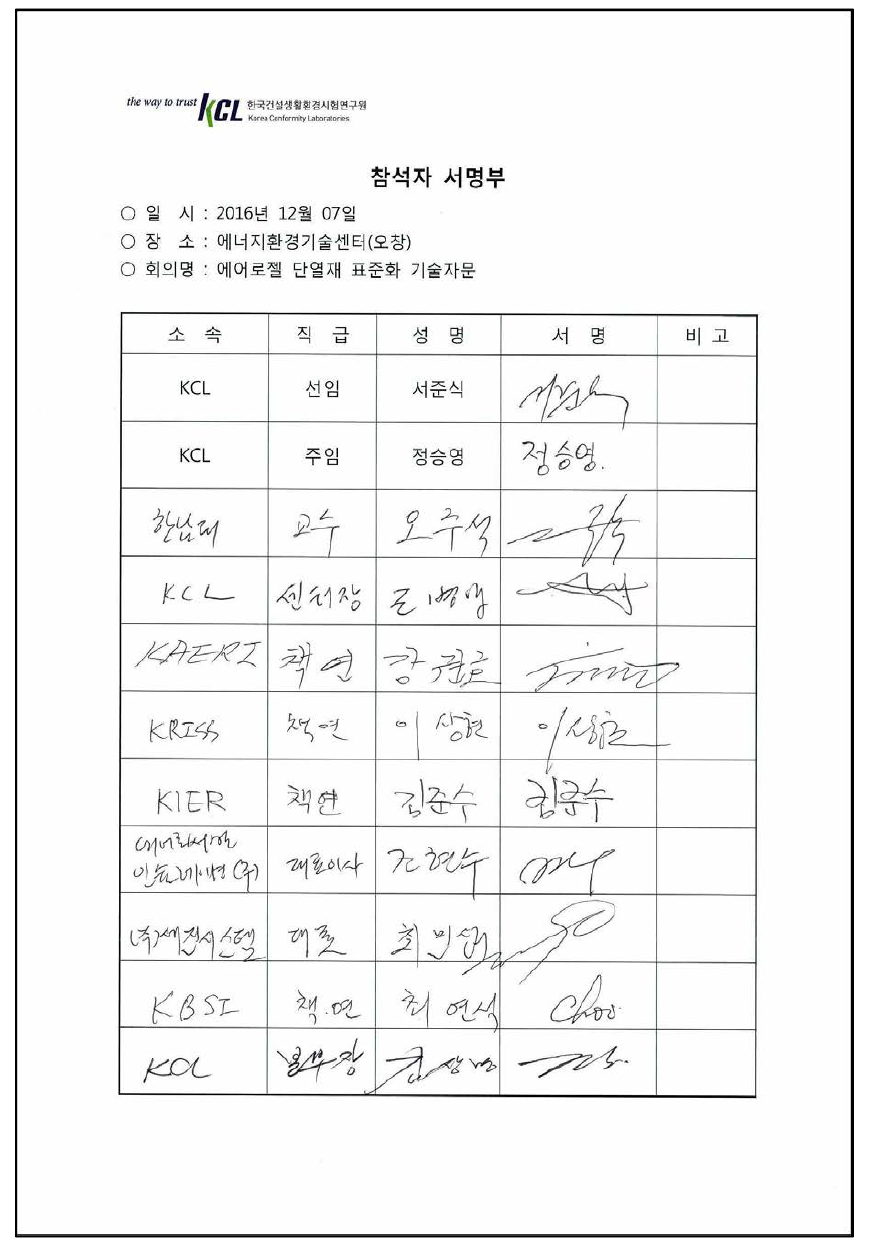 the way to trust KCL 한국건설생활환경시험연구원
Korea Conformity Laboratories
참석자 서명부
○ 일 시 : 2016년 12월 07일
○ 장 소 : 에너지환경기술센터(오창)
○ 회의명 : 에어로젤 단열재 표준화 기술자문
소 속 직 급 성 명 서 명 비 고
KCL 선임 서준식
KCL 주임 정승영 정승영.
한남대 교수 오주석
KCL 센터장
KAERI 책연
KRISS 책연 이상현 이상현
KIER 책연 김준수 김준수
대표이사 조현수
(주)세진시스템 대표 최
KBSI 책연 최연석 Choo
KCL 본부장